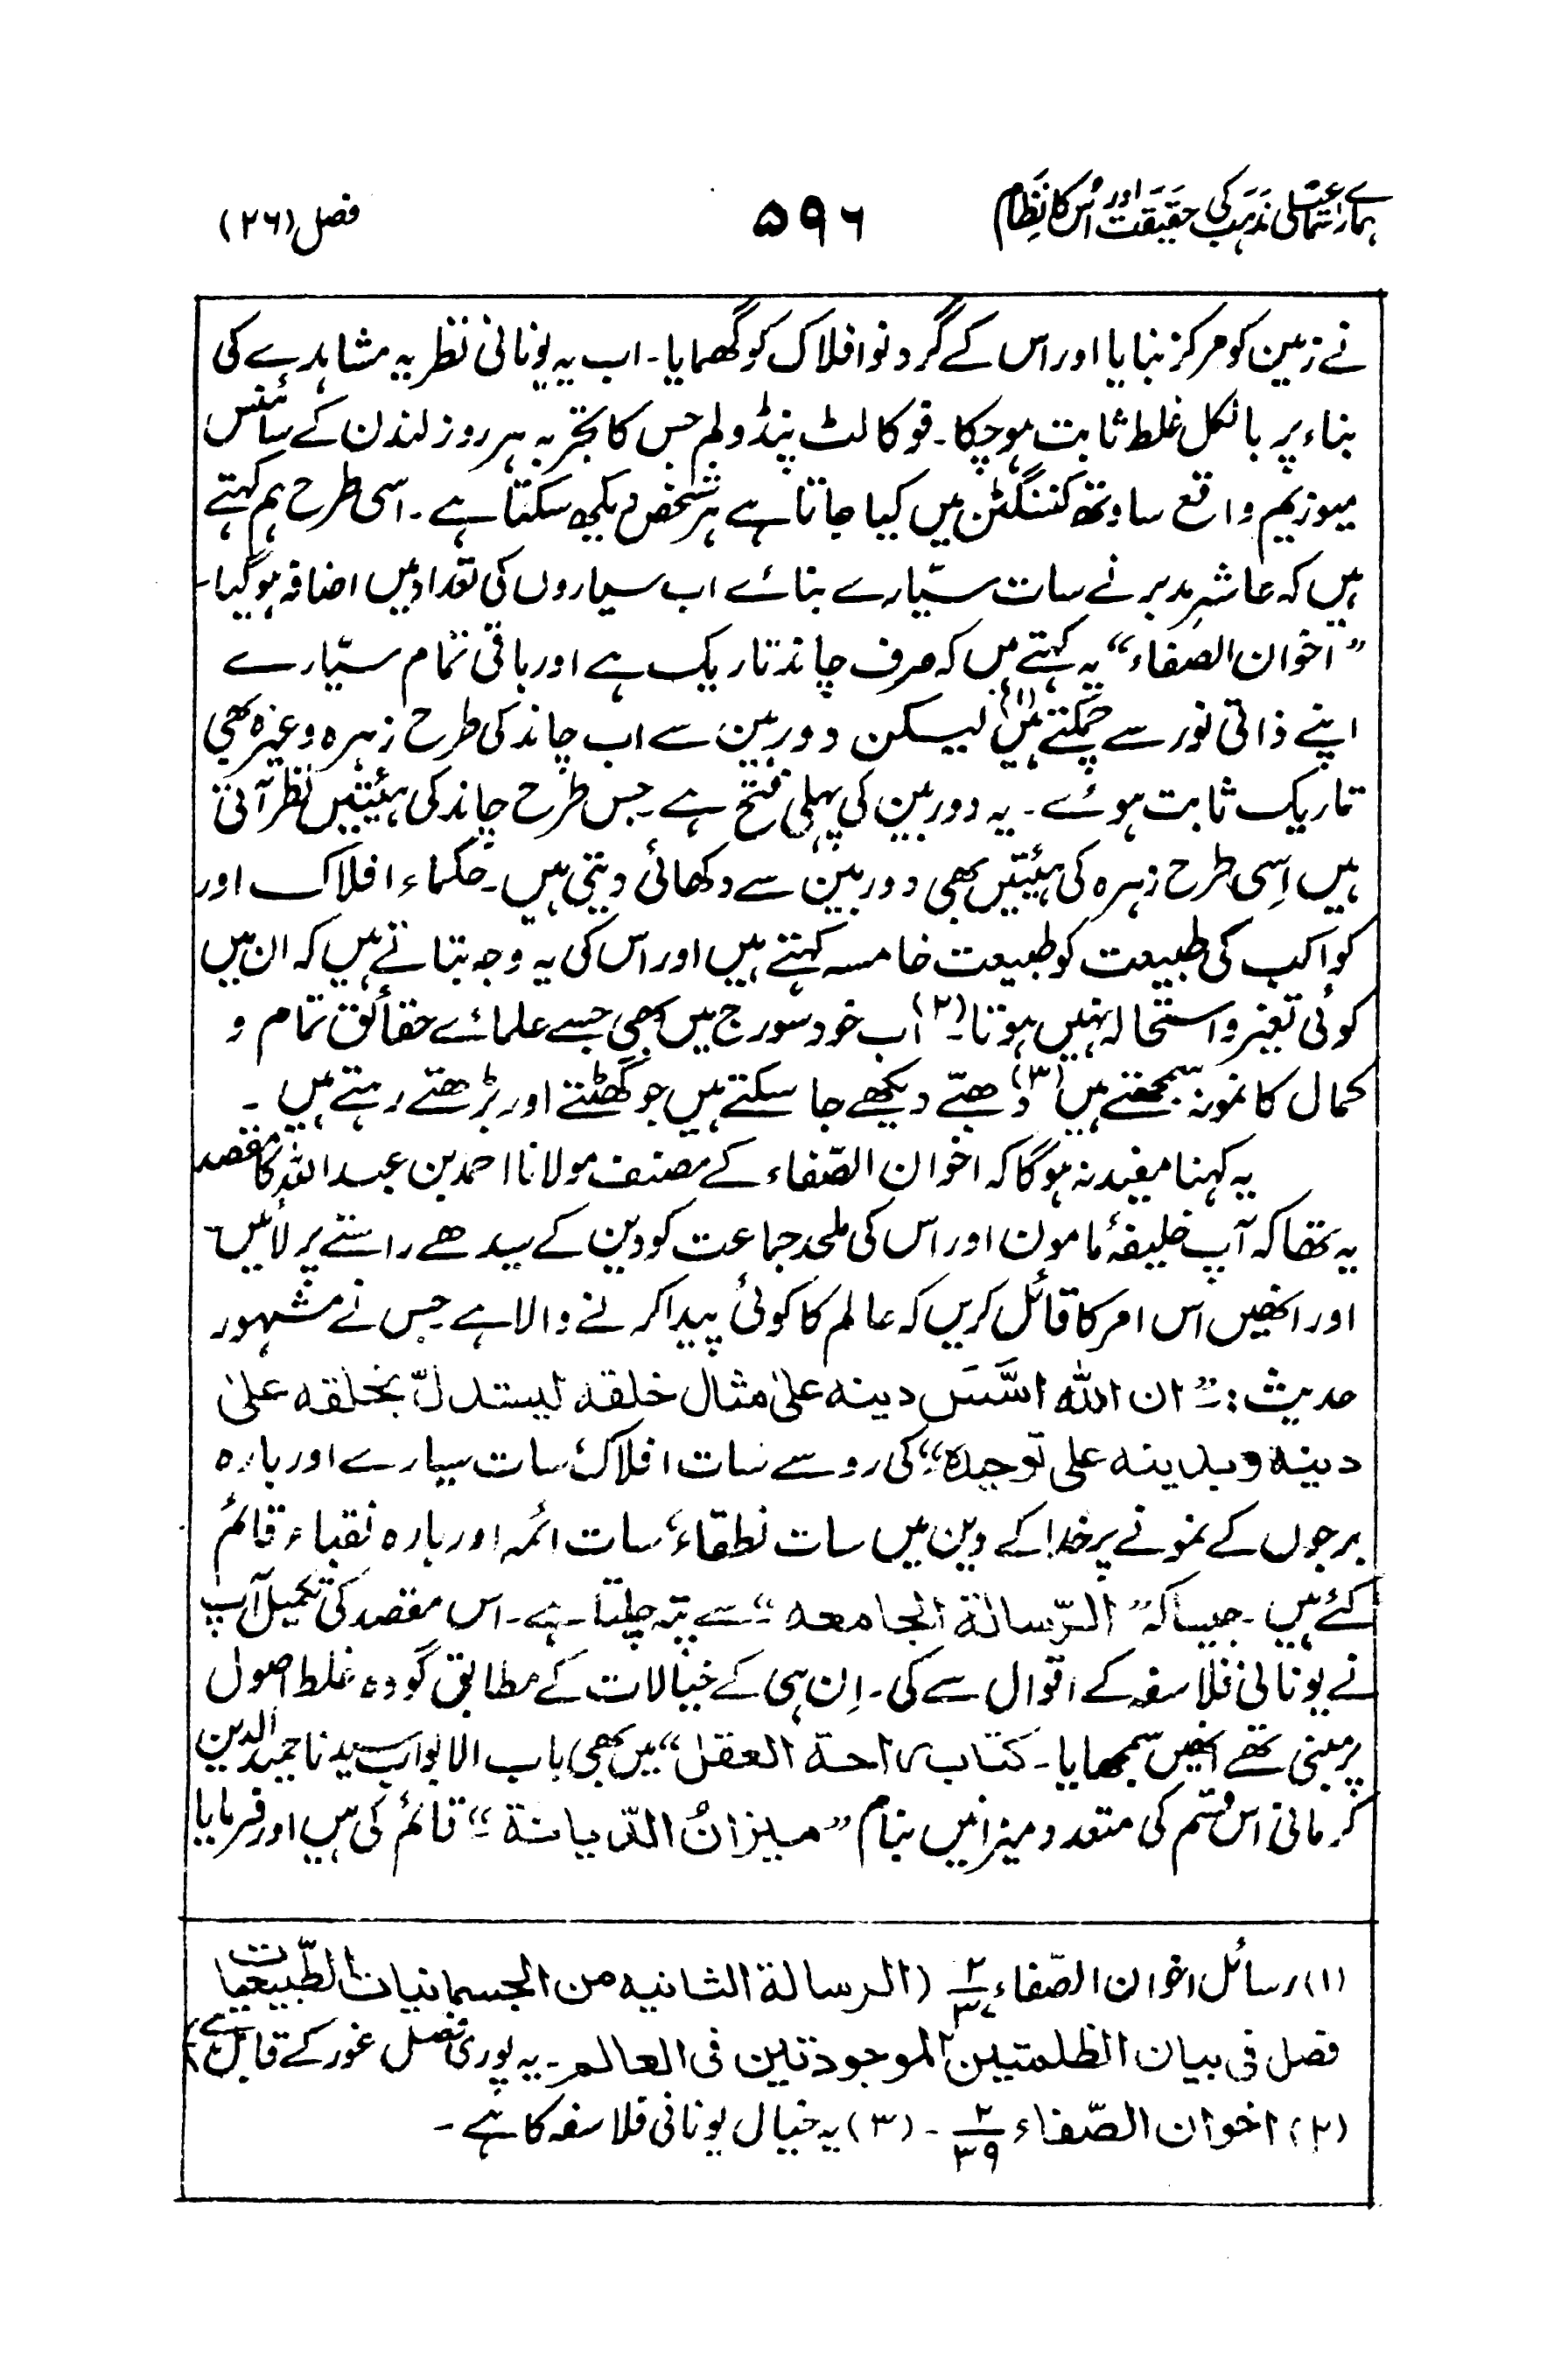 ہمارے اسماعیلی مذہب کی حقیقت اور اُس کا نظام ۵۹۶ فصل (۲۶)
نے زمین کو مرکز بنایا اور اس کے گرد نو افلاک کو گھمایا۔ اب یہ یونانی نظریہ مشاہدے کی
بناء پر بالکل غلط ثابت ہو چکا۔ فوکالٹ پنڈولم جس کا تجربہ ہر روز لندن کے سائنس
میوزیم واقع ساوتھ کننگٹن میں کیا جاتا ہے ہر شخص دیکھ سکتا ہے۔ اسی طرح ہم کہتے
ہیں کہ عاشرِ مدبر نے سات سیّارے بنائے اب سیاروں کی تعداد میں اضافہ ہو گیا۔
”اخوان الصفاء“ یہ کہتے ہیں کہ صرف چاند تاریک ہے اور باقی تمام سیّارے
اپنے ذاتی نور سے چمکتے ہیں(۱) لیکن دوربین سے اب چاند کی طرح زہرہ وغیرہ بھی
تاریک ثابت ہوئے۔ یہ دوربین کی پہلی فتح ہے۔ جس طرح چاند کی ہیئتیں نظر آتی
ہیں اِسی طرح زہرہ کی ہیئتیں بھی دوربین سے دکھائی دیتی ہیں۔ حکماء افلاک اور
کواکب کی طبیعت کو طبیعت خامسہ کہتے ہیں اور اس کی یہ وجہ بتاتے ہیں کہ ان میں
کوئی تغیر و استحالہ نہیں ہوتا۔(۲) اب خود سورج میں بھی جسے علمائے حقائق تمام و
کمال کا نمونہ سمجھتے ہیں(۳) دھبّے دیکھے جا سکتے ہیں جو گھٹتے اور بڑھتے رہتے ہیں۔
یہ کہنا مفید نہ ہوگا کہ اخوان الصّفاء کے مصنف مولانا احمد بن عبد اللہ کا مقصد
یہ تھا کہ آپ خلیفۂ مامون اور اس کی ملحد جماعت کو دین کے سیدھے راستے پر لائیں۔
اور انھیں اس امر کا قائل کریں کہ عالم کا کوئی پیدا کرنے والا ہے جس نے مشہور
حدیث :۔ ”ان اللہ اسَّسَ دینہ علیٰ مثال خلقہ لیستدلّ بخلقہ علیٰ
دینہ و بدینہ علی توحیدہ“ کی رو سے سات افلاک، سات سیارے اور بارہ
برجوں کے نمونے پر خدا کے دین میں سات نطقاء، سات ائمہ اور بارہ نقباء قائم
کئے ہیں۔ جیسا کہ ”الرّسالۃ الجامعہ“ سے پتہ چلتا ہے۔ اس مقصد کی تکمیل آپ
نے یونانی فلاسفہ کے اقوال سے کی۔ اِن ہی کے خیالات کے مطابق گو وہ غلط اصول
پر مبنی تھے انھیں سمجھایا۔ کتاب ”راحۃ العقل“ میں بھی باب الابواب سیدنا حمید الدین
کرمانی اس قسم کی متعدد میزانیں بنام ”میزانُ الدّیانۃ“ قائم کی ہیں اور فرمایا
(۱) رسائل اخوان الصّفاء ۲/ (الرسالۃ الثانیہ من الجسمانیات الطّبیعیات
فصل فی بیان الظلمتین الموجودتین فی العالم۔ یہ پوری فصل غور کے قابل ہے)
(۲) اخوان الصّفاء ۲/۳۹ ۔ (۳) یہ خیال یونانی فلاسفہ کا ہے۔